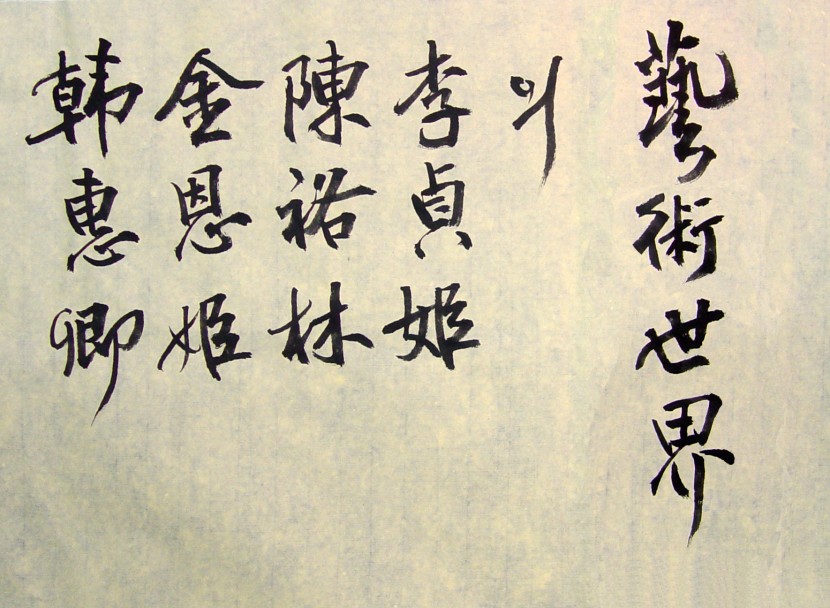 藝術世界
의
李貞姬
陳裕林
金恩姬
韓惠卿